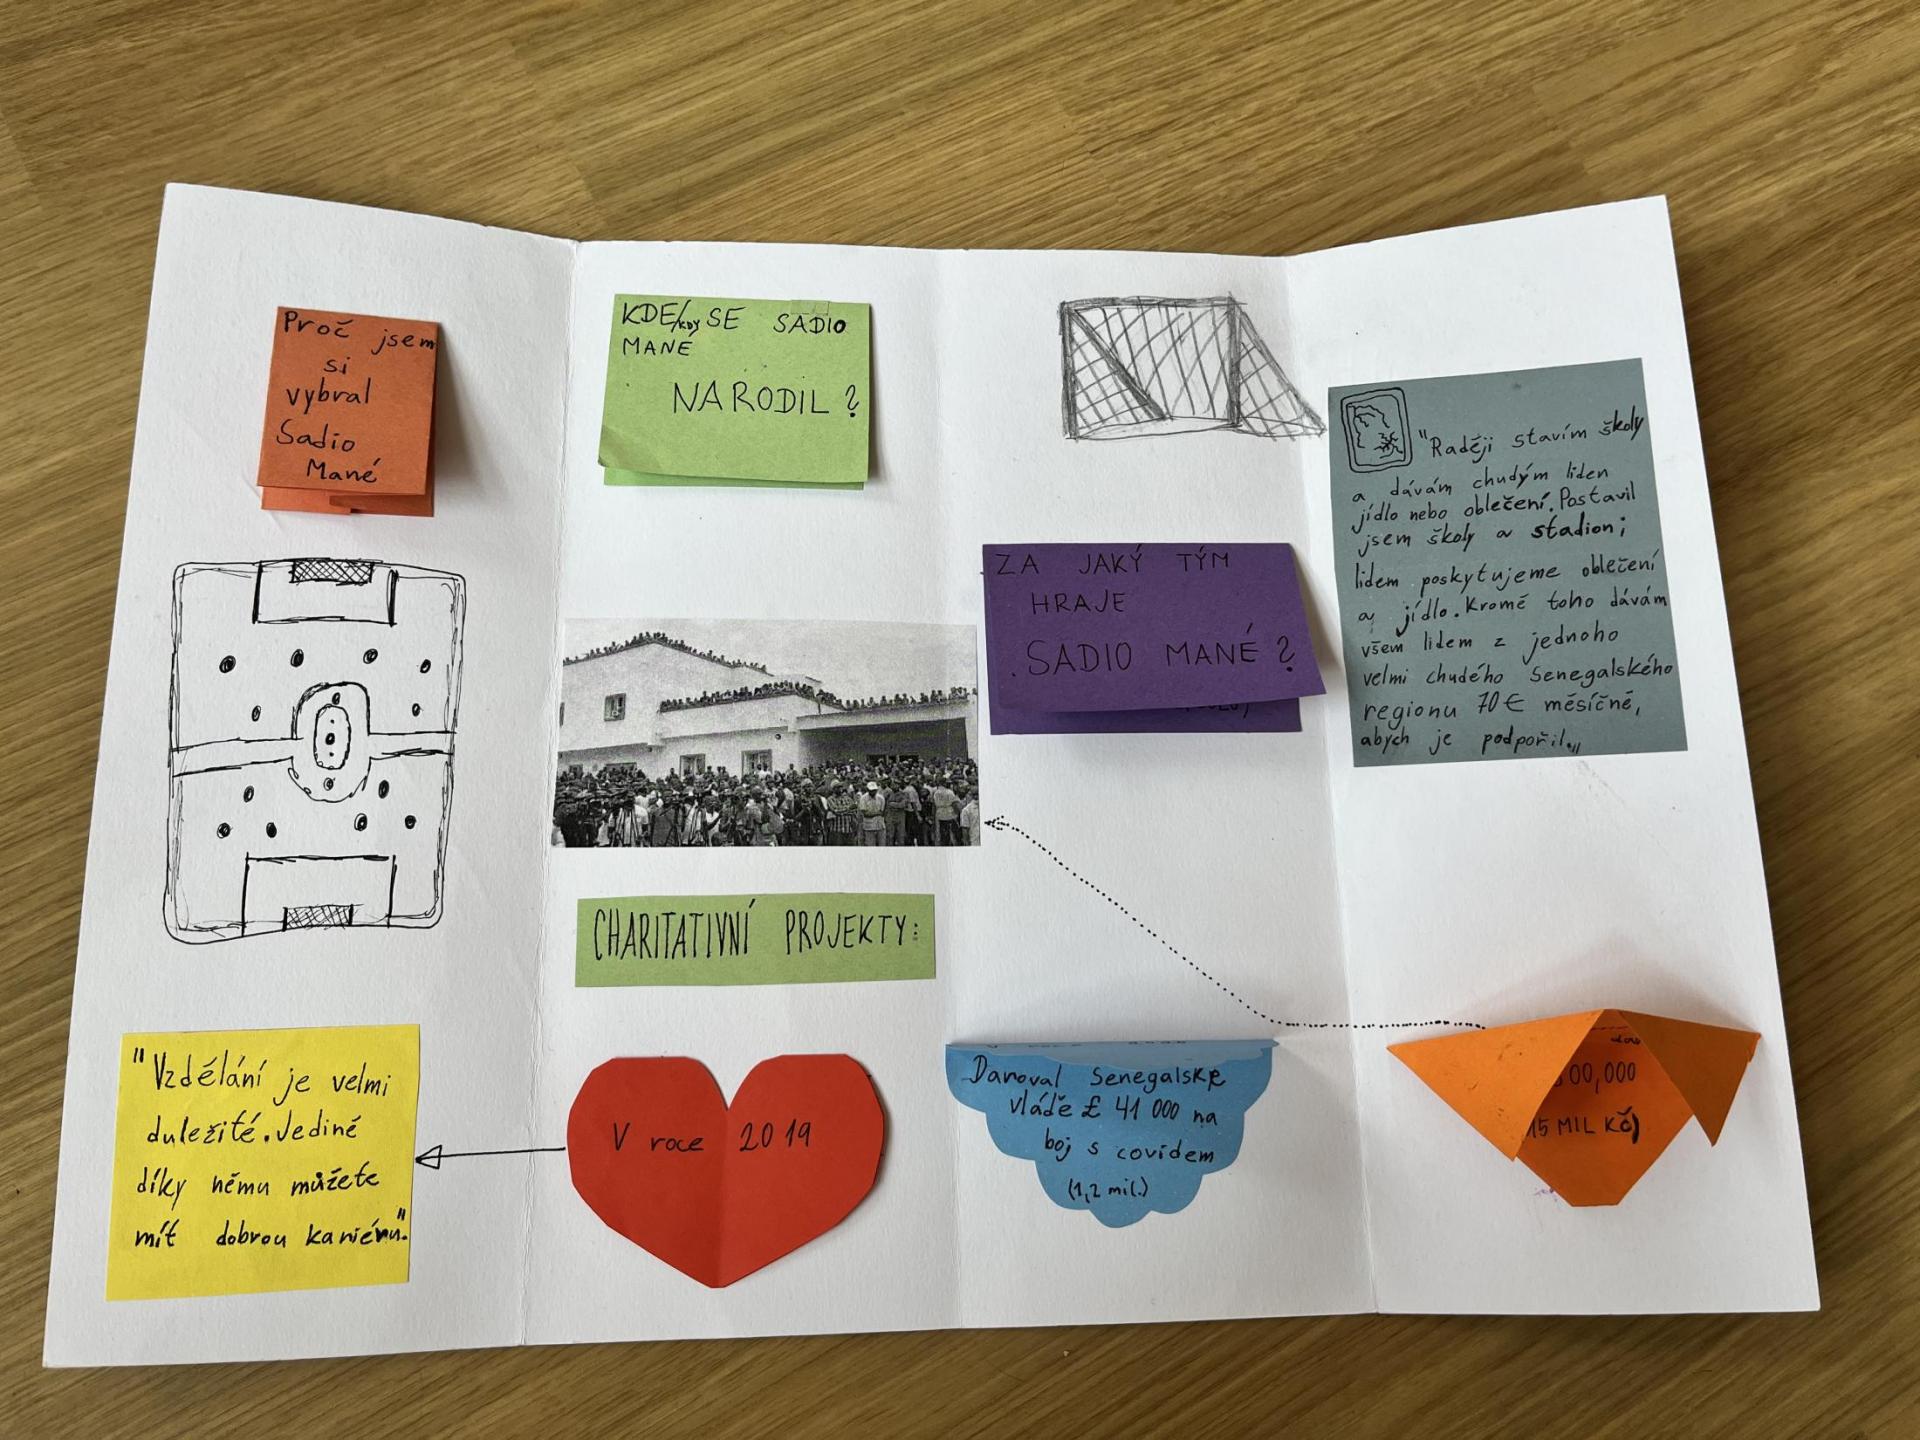 Proč jsem
si
vybral
Sadio
Mané
KDE/KDY SE SADIO
MANÉ
NARODIL?
ZA JAKÝ TÝM
HRAJE
SADIO MANÉ?
"Raději stavím školy
a dávám chudým liden
jídlo nebo oblečení. Postavil
jsem školy a stadion;
lidem poskytujeme oblečení
a jídlo. Kromě toho dávám
všem lidem z jednoho
velmi chudého Senegalského
regionu 70€ měsíčně,
abych je podpořil.„
CHARITATIVNÍ PROJEKTY:
"Vzdělání je velmi
duležité. Jedině
díky němu můžete
mít dobrou kariéru."
V roce 2019
Daroval Senegalské
vládě £ 41 000 na
boj s covidem
(1,2 mil.)
00,000
15 MIL KČ)